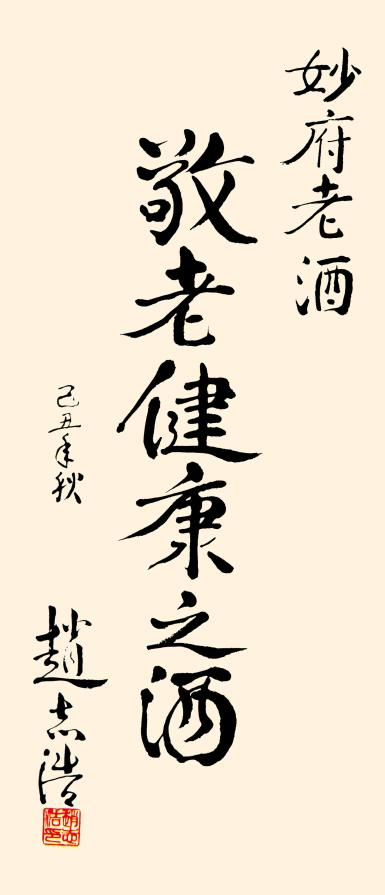 妙府老酒
敬老健康之酒
己丑年秋
趙志浩
趙志浩印